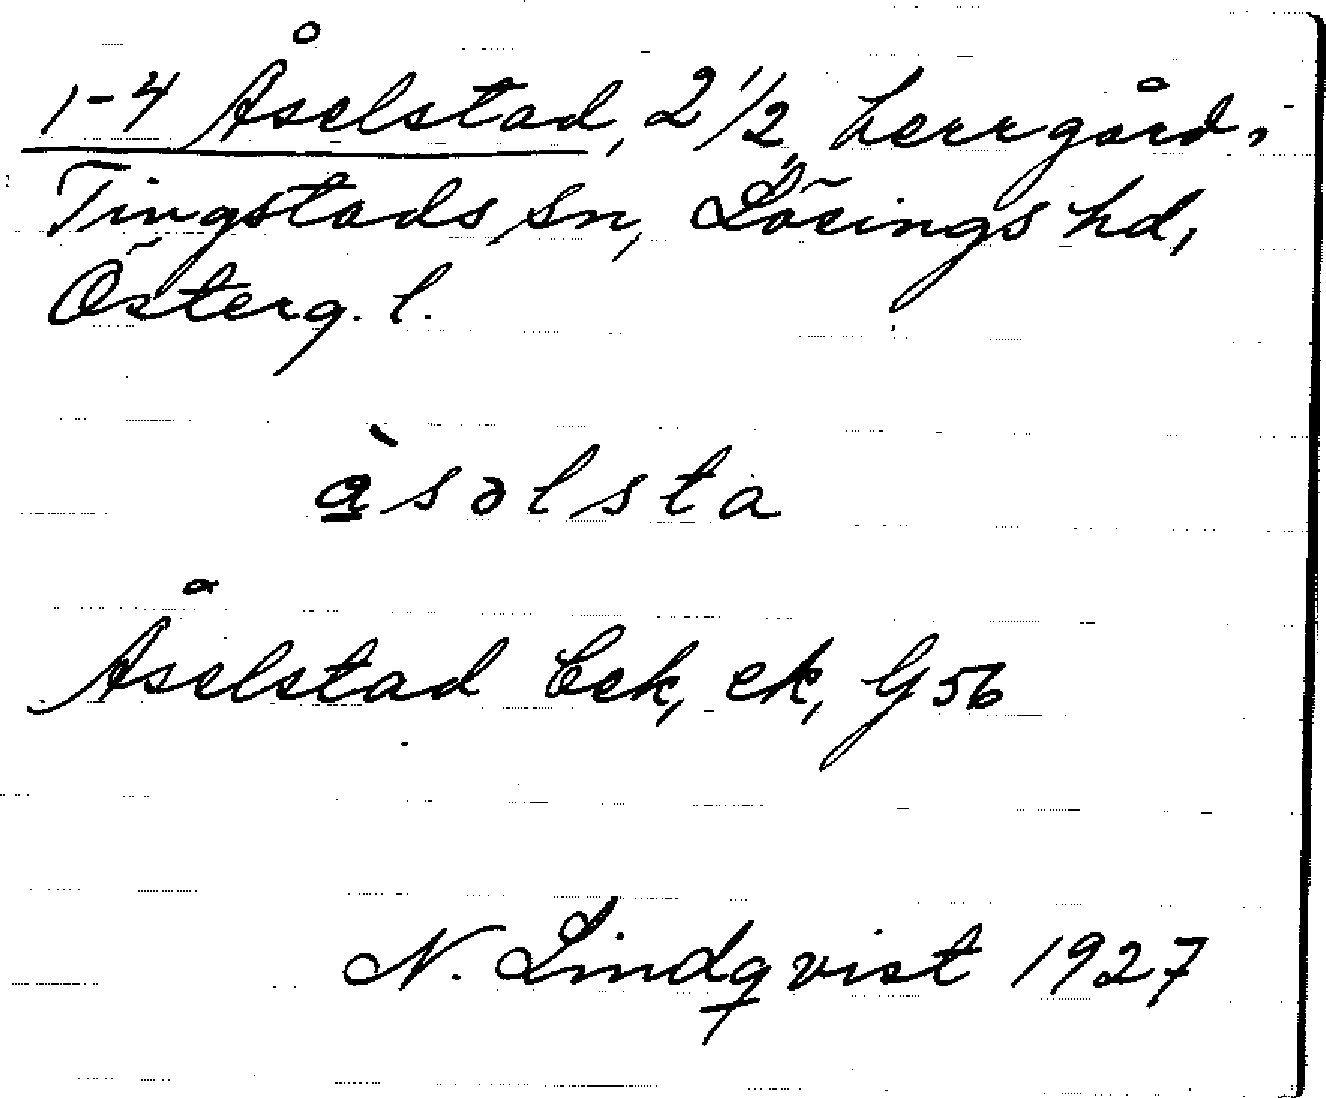 1-4 Åselstad, 2 1/2 herrgård,
Tingstads sn, Lösings hd,
Österg. l.
àsəlsta
Åselstad Eek, ek, G 56
N. Lindqvist 1927